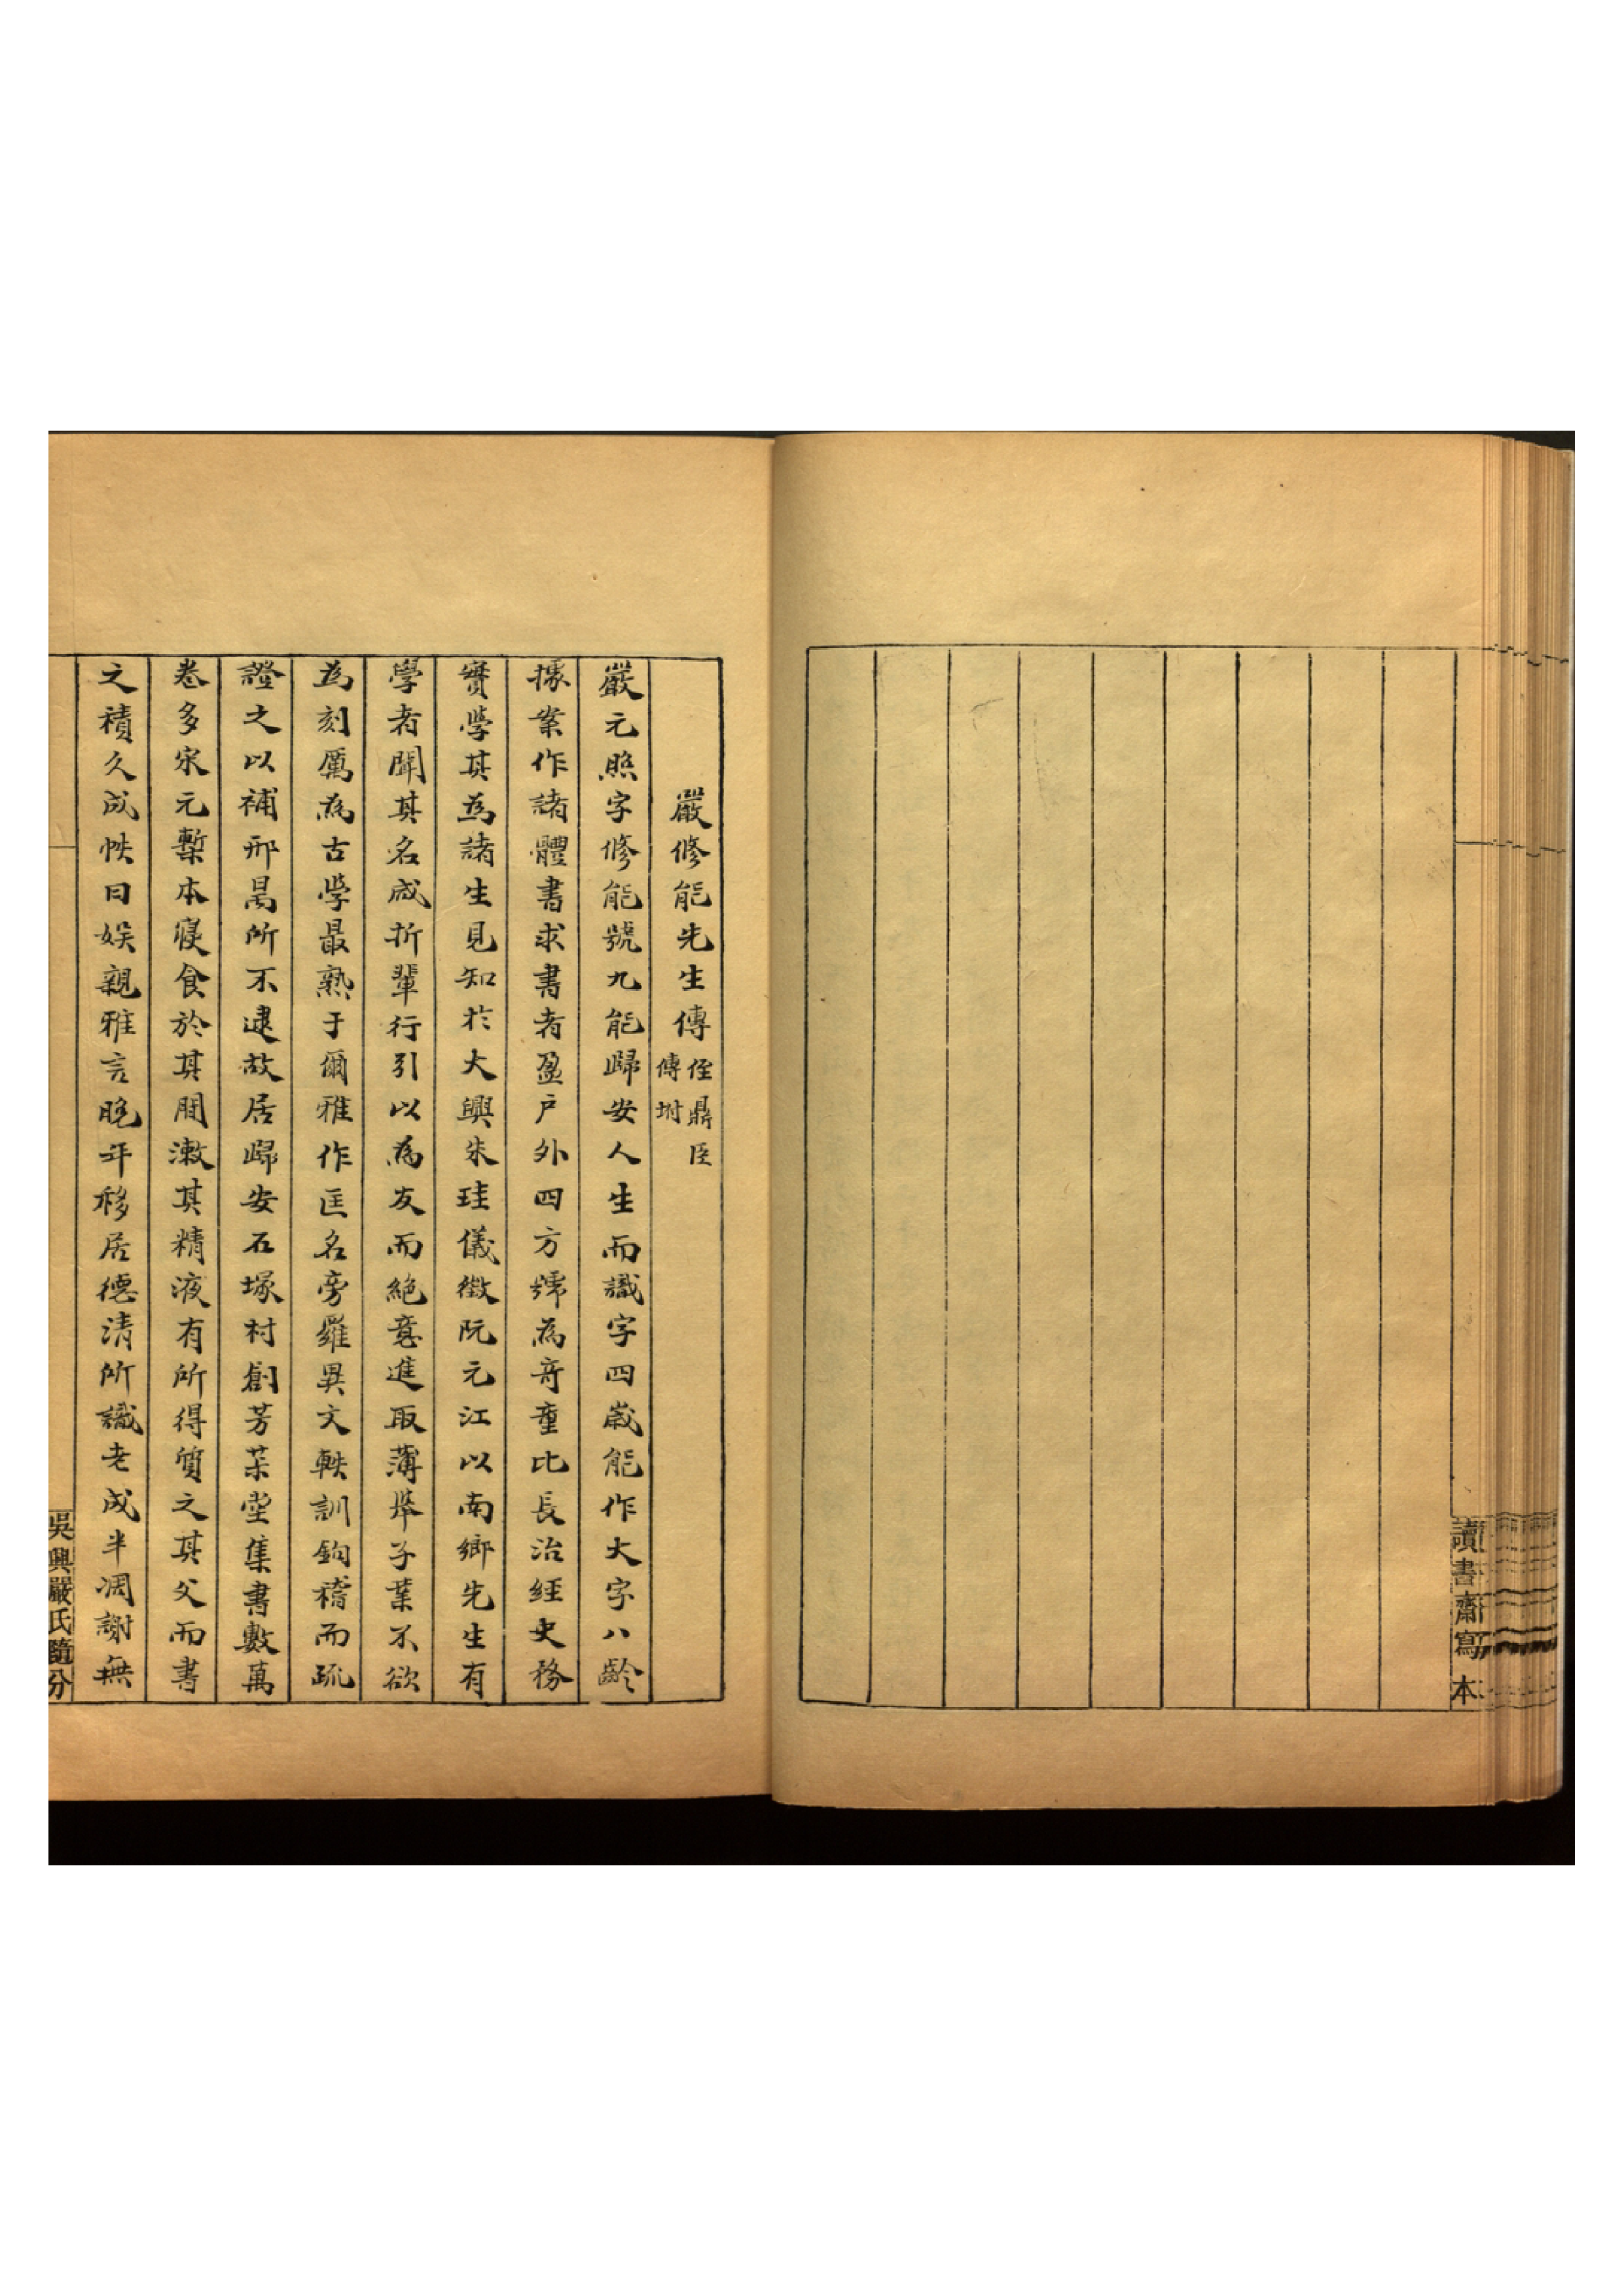 讀書齋寫本
嚴修能先生傳 侄鼎臣傳坿
嚴元照字修能號九能歸安人生而識字四歲能作大字八齡
據案作諸體書求書者盈户外四方號為竒童比長治經史務
實學其為諸生見知於大興朱珪儀徵阮元江以南鄉先生有
學者聞其名咸折輩行引以為友而絕意進取薄舉子業不欲
為刻厲為古學最熟于爾雅作匡名旁羅異文軼訓鉤稽而疏
證之以補邢昺所不逮故居歸安石塚村創芳茮堂集書數萬
卷多宋元槧本寢食於其間漱其精液有所得質之其父而書
之積久成帙曰娱親雅言晚年移居德清所識老成半凋謝無
吳興嚴氏隨分